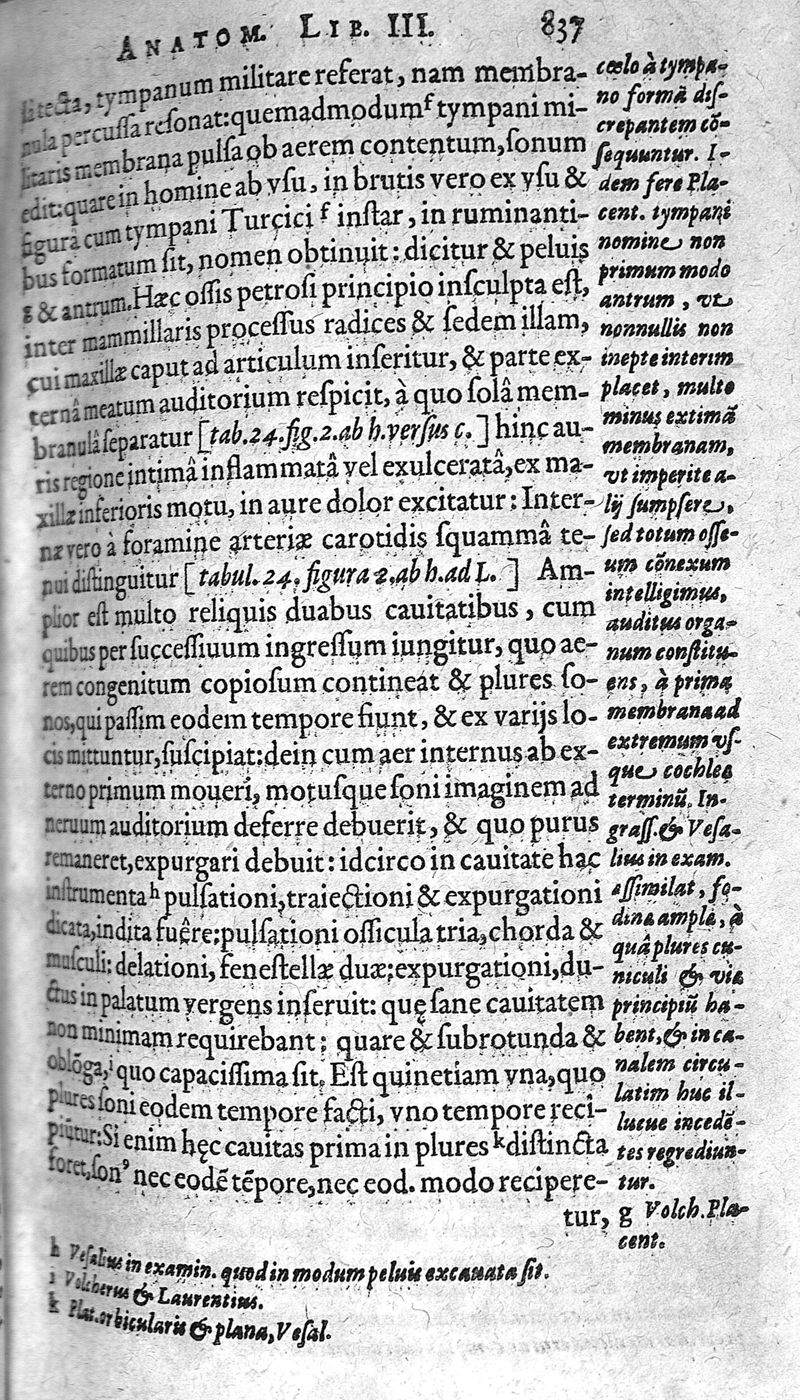 ANATOM. LIB. III. 837
tecta, tympanum militare referat, nam membra-
nula percussa resonat: quemadmodum f tympani mi-
litaris membrana pulsa ob aerem contentum, sonum
edit: quare in homine ab vsu, in brutis vero ex vsu &
figurâ cum tympani Turcici f instar, in ruminanti-
bus formatum sit, nomen obtinuit: dicitur & peluis
g & antrum. Hæc ossis petrosi principio insculpta est,
inter mammillaris processus radices & sedem illam,
cui maxillæ caput ad articulum inseritur, & parte ex-
ternâ meatum auditorium respicit, à quo solâ mem-
branulâ separatur [tab. 24. fig. 2. ab h. versus c.] hinc au-
ris regione intimâ inflammatâ vel exulceratâ, ex ma-
xillæ inferioris motu, in aure dolor excitatur: Inter-
næ vero à foramine arteriæ carotidis squammâ te-
nui distinguitur [tabul. 24. figura 2. ab h. ad L.] Am-
plior est multo reliquis duabus cauitatibus, cum
quibus per successiuum ingressum iungitur, quo ae-
rem congenitum copiosum contineat & plures so-
nos, qui passim eodem tempore fiunt, & ex varijs lo-
cis mittuntur, suscipiat: dein cum aer internus ab ex-
terno primum moueri, motusque soni imaginem ad
neruum auditorium deferre debuerit, & quo purus
remaneret, expurgari debuit: idcirco in cauitate hac
instrumenta h pulsationi, traiectioni & expurgationi
dicata, indita fuêre: pulsationi ossicula tria, chorda &
musculi: delationi, fenestellæ duæ; expurgationi, du-
ctus in palatum vergens inseruit: quę sane cauitatem
non minimam requirebant: quare & subrotunda &
oblõga, i quo capacissima sit. Est quinetiam vna, quo
plures soni eodem tempore facti, vno tempore reci-
piũtur: Si enim hęc cauitas prima in plures k distincta
foret, sonꝰ nec eodẽ tẽpore, nec eod. modo recipere-
tur,
cœlo à tympa-
no formâ dis-
crepantem cõ-
sequuntur. I-
dem fere Pla-
cent. tympani
nomine non
primum modo
antrum, vt
nonnullis non
inepte interim
placet, multo
minus extimã
membranam,
vt imperite a-
lij sumpsere,
sed totum osse-
um cõnexum
intelligimus,
auditus orga-
num constitu-
ens, à prima
membrana ad
extremum vs-
que cochleæ
terminũ. In-
grass. & Vesa-
lius in exam.
assimilat, fo-
dinæ amplæ, à
quâ plures cu-
niculi & viæ
principiũ ha-
bent, & in ca-
nalem circu-
latim huc il-
lucue incedẽ-
tes regrediun-
tur.
g Volch. Pla-
cent.
h Vesalius in examin. quod in modum peluis excauata sit.
i Volcherus & Laurentius.
k Plat. orbicularis & plana, Vesal.